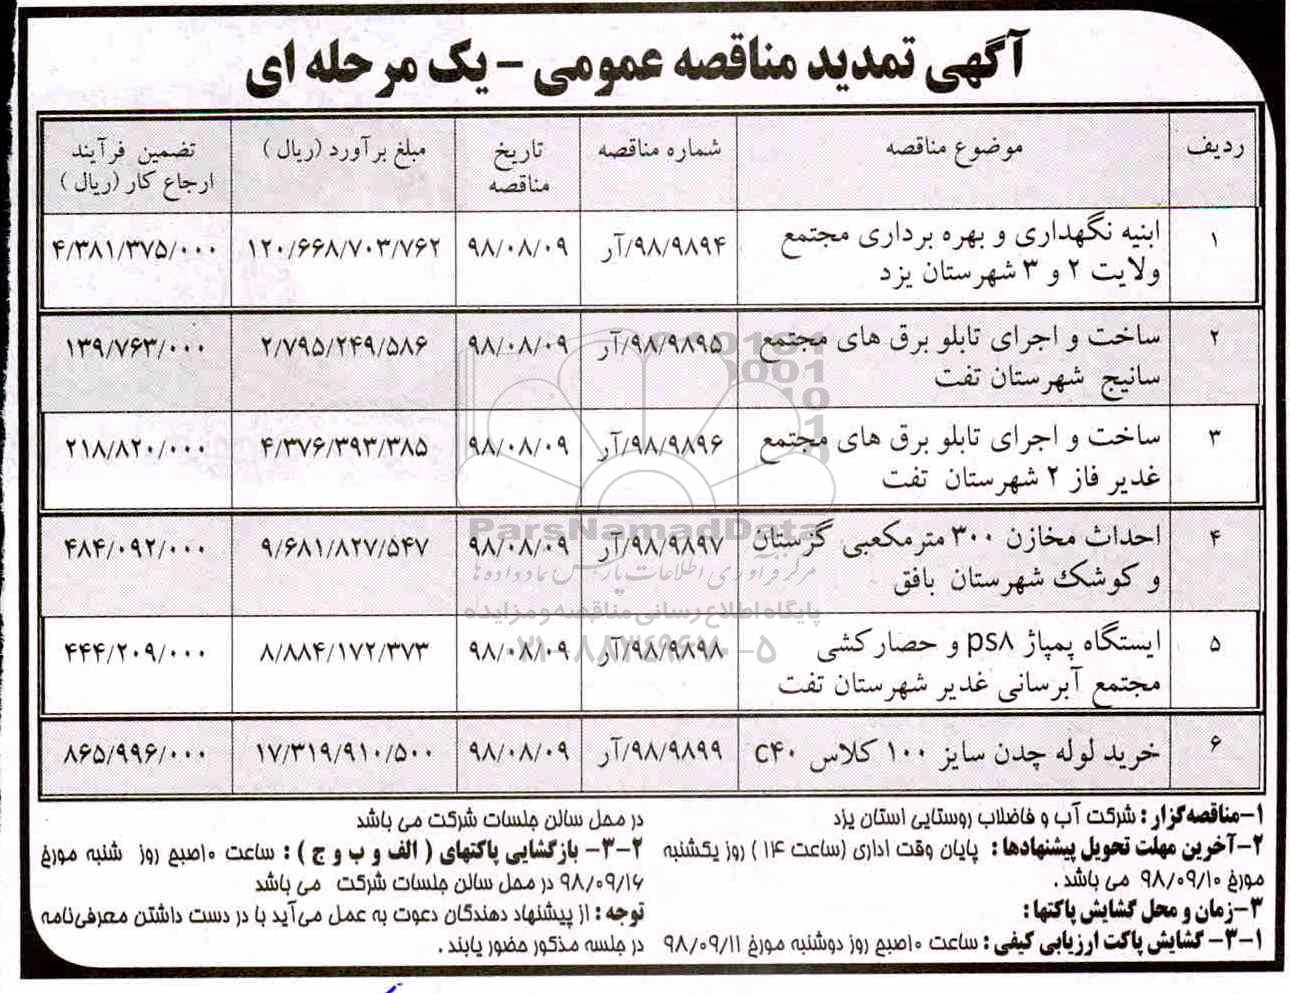 آگهی تمدید مناقصه عمومی - یک مرحله ای
ردیف موضوع مناقصه شماره مناقصه تاریخ مناقصه مبلغ برآورد (ریال) تضمین فرآیند ارجاع کار (ریال)
۱ ابنیه نگهداری و بهره برداری مجتمع ۹۸/۹۸۹۴/آر ۹۸/۰۸/۰۹ ۱۲۰/۶۶۸/۷۰۳/۷۶۲ ۴/۳۸۱/۳۷۵/۰۰۰
ولایت ۲ و ۳ شهرستان یزد
۲ ساخت و اجرای تابلو برق های مجتمع ۹۸/۹۸۹۵/آر ۹۸/۰۸/۰۹ ۲/۷۹۵/۲۴۹/۵۸۶ ۱۳۹/۷۶۳/۰۰۰
سانیج شهرستان تفت
۳ ساخت و اجرای تابلو برق های مجتمع ۹۸/۹۸۹۶/آر ۹۸/۰۸/۰۹ ۴/۳۷۶/۳۹۳/۳۸۵ ۲۱۸/۸۲۰/۰۰۰
غدیر فاز ۲ شهرستان تفت
۴ احداث مخازن ۳۰۰ مترمکعبی گزستان ۹۸/۹۸۹۷/آر ۹۸/۰۸/۰۹ ۹/۶۸۱/۸۲۷/۵۴۷ ۴۸۴/۰۹۲/۰۰۰
و کوشک شهرستان بافق
۵ ایستگاه پمپاژ ps۸ و حصارکشی ۹۸/۹۸۹۸/آر ۹۸/۰۸/۰۹ ۸/۸۸۴/۱۷۲/۳۷۳ ۴۴۴/۲۰۹/۰۰۰
مجتمع آبرسانی غدیر شهرستان تفت
۶ خرید لوله چدن سایز ۱۰۰ کلاس C۴۰ ۹۸/۹۸۹۹/آر ۹۸/۰۸/۰۹ ۱۷/۳۱۹/۹۱۰/۵۰۰ ۸۶۵/۹۹۶/۰۰۰
ParsNamadData
مرکز فرآوری اطلاعات پارس نماد داده ها
پایگاه اطلاع رسانی مناقصه و مزایده
۰۲۱-۸۸۳۴۹۶۷۰-۵
۱-مناقصه‌گزار : شرکت آب و فاضلاب روستایی استان یزد
۲-آخرین مهلت تحویل پیشنهادها : پایان وقت اداری (ساعت ۱۴ ) روز یکشنبه
مورخ ۹۸/۰۹/۱۰ می باشد .
۳-زمان و محل گشایش پاکتها:
۳-۱- گشایش پاکت ارزیابی کیفی : ساعت ۱۰صبح روز دوشنبه مورخ ۹۸/۰۹/۱۱
در محل سالن جلسات شرکت می باشد
۳-۲- بازگشایی پاکتهای ( الف و ب و ج ) : ساعت ۱۰صبح روز شنبه مورخ
۹۸/۰۹/۱۶ در محل سالن جلسات شرکت می باشد
توجه : از پیشنهاد دهندگان دعوت به عمل می‌آید با در دست داشتن معرفی‌نامه
در جلسه مذکور حضور یابند .